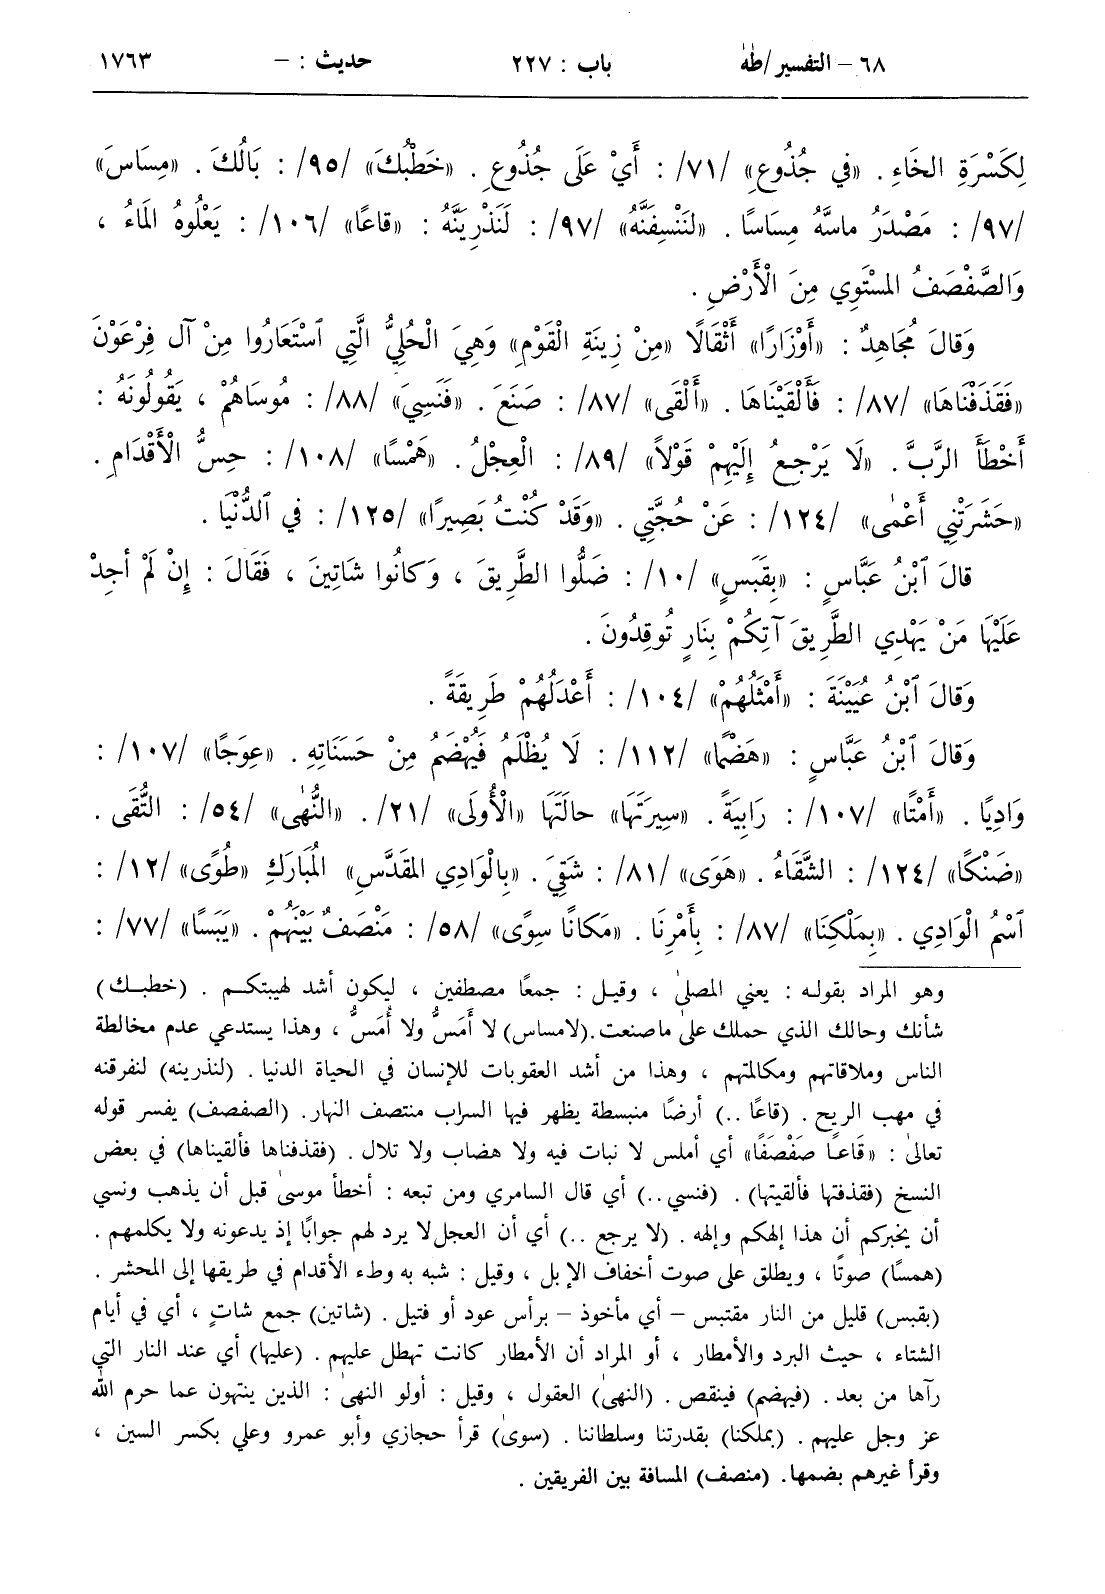 ٦٨ – التفسير/طه باب : ٢٢٧ حديث : – ١٧٦٣
لِكَسْرَةِ الخَاءِ . «في جُذُوعِ» /٧١/ : أَيْ عَلَى جُذُوعِ . «خَطْبُكَ» /٩٥/ : بَالُكَ . «مِسَاسَ»
/٩٧/ : مَصْدَرُ ماسَّهُ مِسَاسًا . «لَنَنْسِفَنَّهُ» /٩٧/ : لَنَذْرِيَنَّهُ : «قاعًا» /١٠٦/ : يَعْلُوهُ المَاءُ ،
وَالصَّفْصَفُ المسْتَوِي مِنَ الْأَرْضِ .
وَقالَ مُجَاهِدٌ : «أَوْزَارًا» أَثْقَالًا «مِنْ زِينَةِ الْقَوْمِ» وَهِيَ الْحُلِيُّ الَّتِي ٱسْتَعَارُوا مِنْ آلِ فِرْعَوْنَ
«فَقَذَفْنَاهَا» /٨٧/ : فَأَلْقَيْنَاهَا . «أَلْقَى» /٨٧/ : صَنَعَ . «فَنَسِيَ» /٨٨/ : مُوسَاهُمْ ، يَقُولُونَهُ :
أَخْطَأَ الرَّبَّ . «لَا يَرْجِعُ إِلَيْهِمْ قَوْلاً» /٨٩/ : الْعِجْلُ . «هَمْسًا» /١٠٨/ : حِسُّ الْأَقْدَامِ .
«حَشَرْتَنِي أَعْمٰى» /١٢٤/ : عَنْ حُجَّتِي . «وَقَدْ كُنْتُ بَصِيرًا» /١٢٥/ : في ٱلدُّنْيَا .
قالَ ٱبْنُ عَبَّاسٍ : «بِقَبَسٍ» /١٠/ : ضَلُّوا الطَّرِيقَ ، وَكانُوا شَاتِينَ ، فَقَالَ : إِنْ لَمْ أَجِدْ
عَلَيْهَا مَنْ يَهْدِي الطَّرِيقَ آتِكُمْ بِنَارٍ تُوقِدُونَ .
وَقالَ ٱبْنُ عُيَيْنَةَ : «أَمْثَلُهُمْ» /١٠٤/ : أَعْدَلُهُمْ طَرِيقَةً .
وَقالَ ٱبْنُ عَبَّاسٍ : «هَضْمًا» /١١٢/ : لَا يُظْلَمُ فَيُهْضَمُ مِنْ حَسَنَاتِهِ . «عِوَجًا» /١٠٧/ :
وَادِيًا . «أَمْتًا» /١٠٧/ : رَابِيَةً . «سِيرَتَهَا» حالَتَهَا «الْأُولَى» /٢١/. «النُّهٰى» /٥٤/ : التُّقَى .
«ضَنْكًا» /١٢٤/ : الشَّقَاءُ . «هَوَى» /٨١/ : شَقِيَ . «بِالْوَادِي المقَدَّسِ» المُبَارَكِ «طُوًى» /١٢/ :
ٱسْمُ الْوَادِي . «بِمَلْكِنَا» /٨٧/ : بِأَمْرِنَا . «مَكانًا سِوًى» /٥٨/ : مَنْصَفٌ بَيْنَهُمْ . «يَبَسًا» /٧٧/ :
وهو المراد بقوله : يعني المصلىٰ ، وقيل : جمعًا مصطفين ، ليكون أشد لهيبتكم . (خطبك)
شأنك وحالك الذي حملك علىٰ ما صنعت.(لامساس) لا أَمَسُّ ولا أُمَسُّ ، وهذا يستدعي عدم مخالطة
الناس وملاقاتهم ومكالمتهم ، وهذا من أشد العقوبات للإنسان في الحياة الدنيا . (لنذرينه) لنفرقنه
في مهب الريح . (قاعًا ..) أرضًا منبسطة يظهر فيها السراب منتصف النهار. (الصفصف) يفسر قوله
تعالىٰ : «قَاعًا صَفْصَفًا» أي أملس لا نبات فيه ولا هضاب ولا تلال . (فقذفناها فألقيناها) في بعض
النسخ (فقذفتها فألقيتها) . (فنسي..) أي قال السامري ومن تبعه : أخطأ موسىٰ قبل أن يذهب ونسي
أن يخبركم أن هذا إلهكم وإلهه . (لا يرجع ..) أي أن العجل لا يرد لهم جوابًا إذ يدعونه ولا يكلمهم .
(همسًا) صوتًا ، ويطلق على صوت أخفاف الإبل ، وقيل : شبه به وطء الأقدام في طريقها إلى المحشر .
(بقبس) قليل من النار مقتبس – أي مأخوذ – برأس عود أو فتيل . (شاتين) جمع شاتٍ ، أي في أيام
الشتاء ، حيث البرد والأمطار ، أو المراد أن الأمطار كانت تهطل عليهم . (عليها) أي عند النار التي
رآها من بعد . (فيهضم) فينقص . (النهىٰ) العقول ، وقيل : أولو النهىٰ : الذين ينتهون عما حرم الله
عز وجل عليهم . (بملكنا) بقدرتنا وسلطاننا . (سوىٰ) قرأ حجازي وأبو عمرو وعلي بكسر السين ،
وقرأ غيرهم بضمها. (منصف) المسافة بين الفريقين .